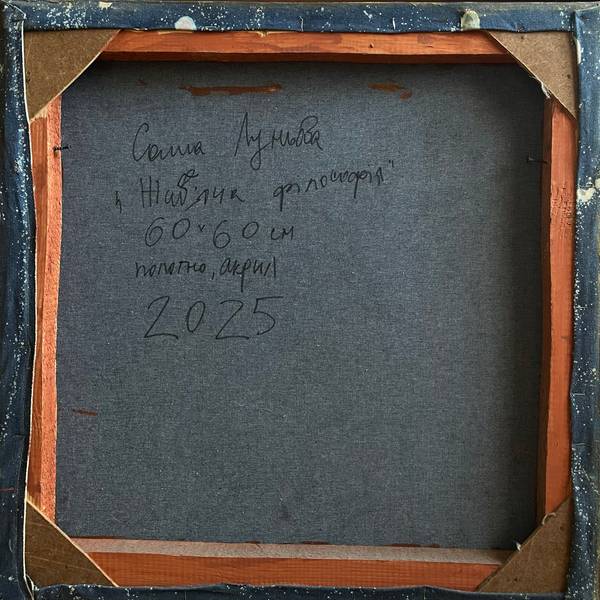 Солла Луньова
„Жаб'яча філософія"
60×60 см
полотно, акрил
2025